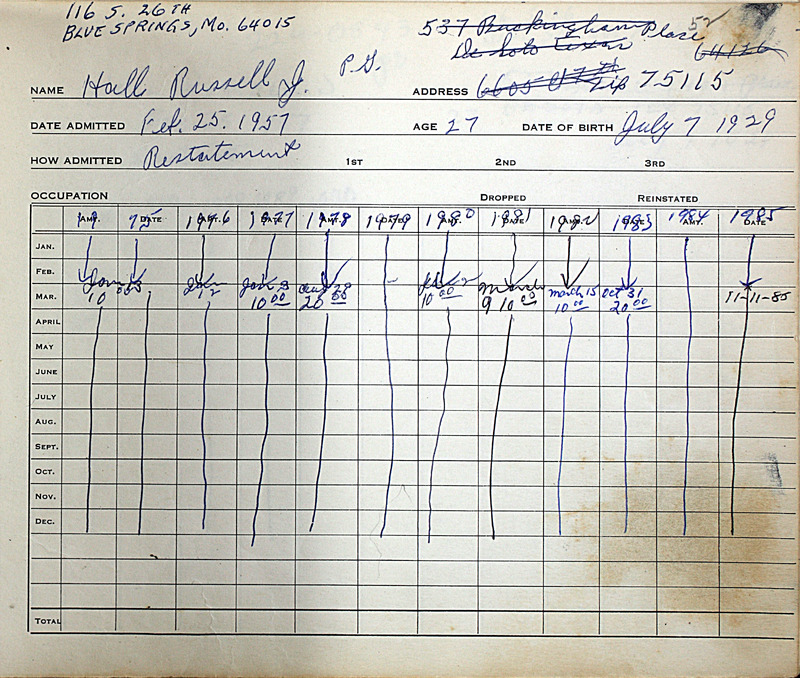 116 S. 26TH
BLUE SPRINGS, MO. 64015
537 Buckingham Place 52
De Soto Texas 64126
NAME Hall Russell J. P.G. ADDRESS 6605 Zip 75115
DATE ADMITTED Feb. 25. 1957 AGE 27 DATE OF BIRTH July 7 1929
HOW ADMITTED Restatement 1ST 2ND 3RD
OCCUPATION DROPPED REINSTATED
19 75 1976 1977 1978 1979 1980 1981 1982 1983 1984 1985
AMT. DATE AMT. DATE AMT. DATE AMT. DATE AMT. DATE AMT. DATE
JAN.
FEB.
Jan Jan 2 Jan 3 Aug 28 March March 15 Oct 31
MAR. 10 00 10 00 20 00 10 00 9 10 00 10 00 20 00 11-11-85
APRIL
MAY
JUNE
JULY
AUG.
SEPT.
OCT.
NOV.
DEC.
TOTAL